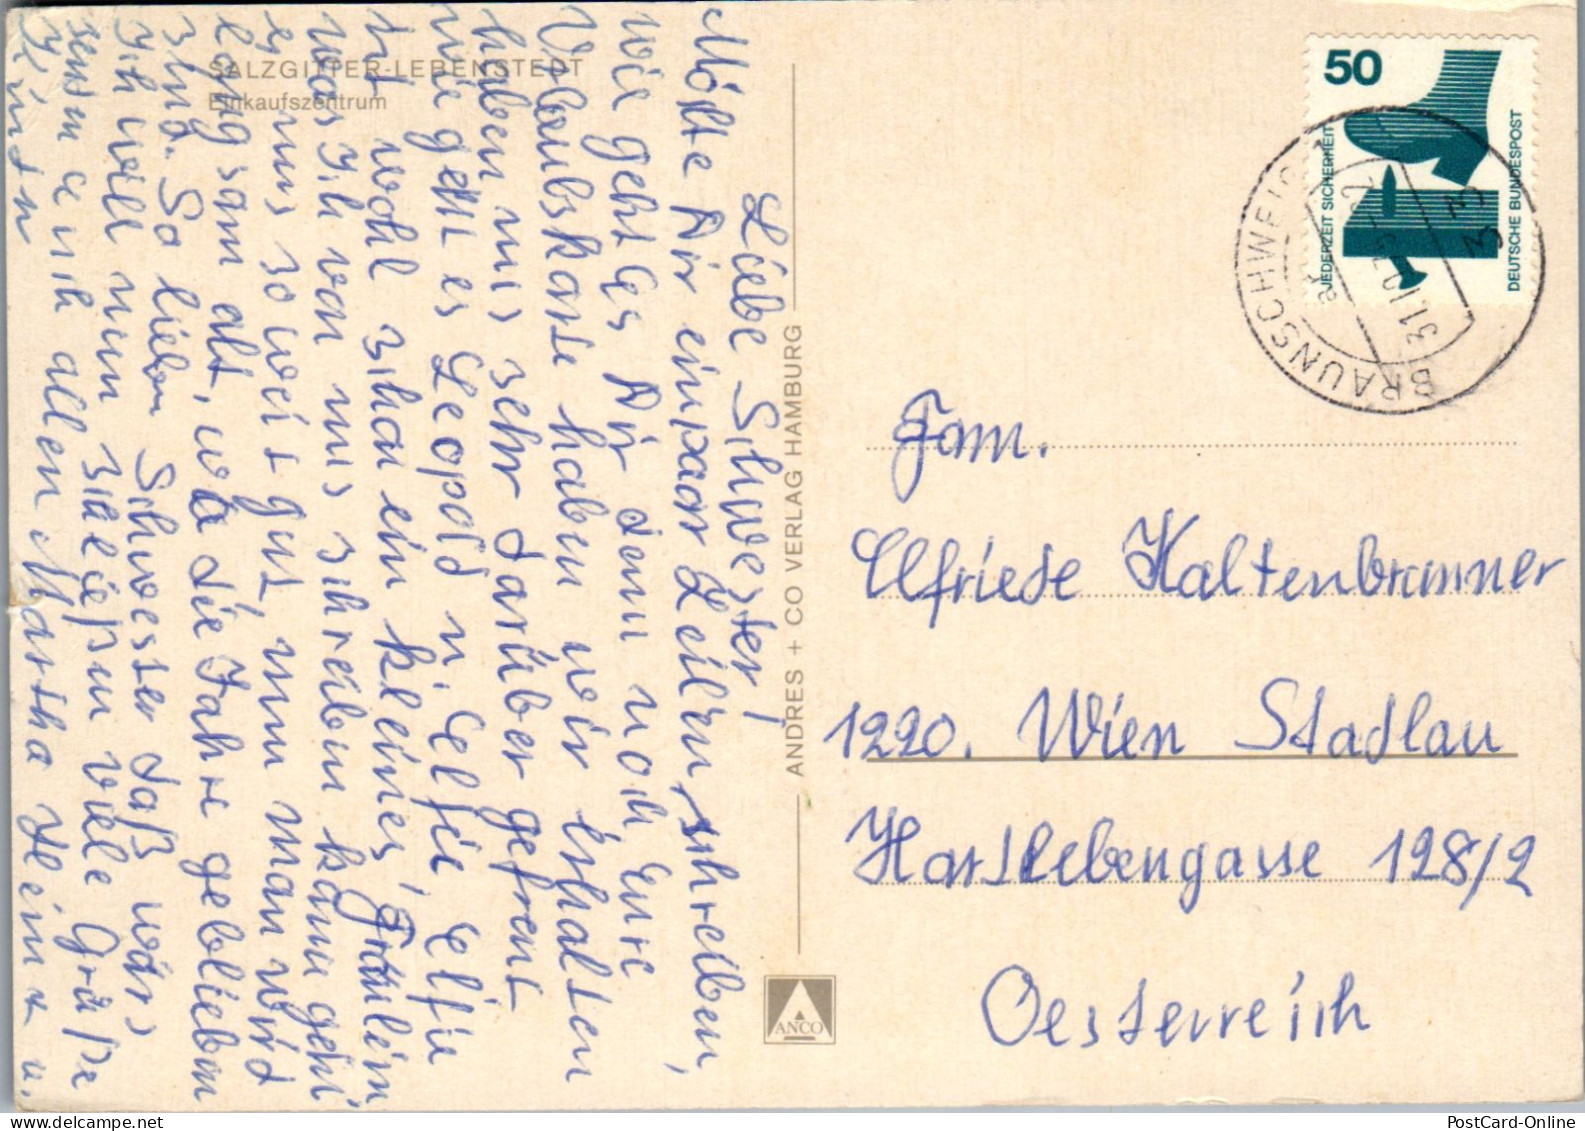 SALZGITTER-LEBENSTEDT
Einkaufszentrum
Liebe Schwester!
Möchte Dir ein paar Zeilen schreiben,
wie geht es Dir denn noch, Eure
Urlaubskarte haben wir erhalten
haben uns sehr darüber gefreut
wie geht es Leopold u. Elfie, Elfie
ist wohl schon ein kleines Fräulein
was ich von uns schreiben kann geht
es uns so weit gut, nun man wird
langsam alt, wo die Jahre geblieben
sind. So lieben Schwester daß wars
ich will nun schließen viele Grüße
senden euch allen Martha Heinz u.
Kinder
ANDRES + CO VERLAG HAMBURG
ANCO
50
JEDERZEIT SICHERHEIT
DEUTSCHE BUNDESPOST
BRAUNSCHWEIG 1
31.10.75-22
33
Fam.
Elfriede Kaltenbrunner
1220. Wien Stadlau
Hartlebengasse 128/2
Oesterreich
PostCard-Online